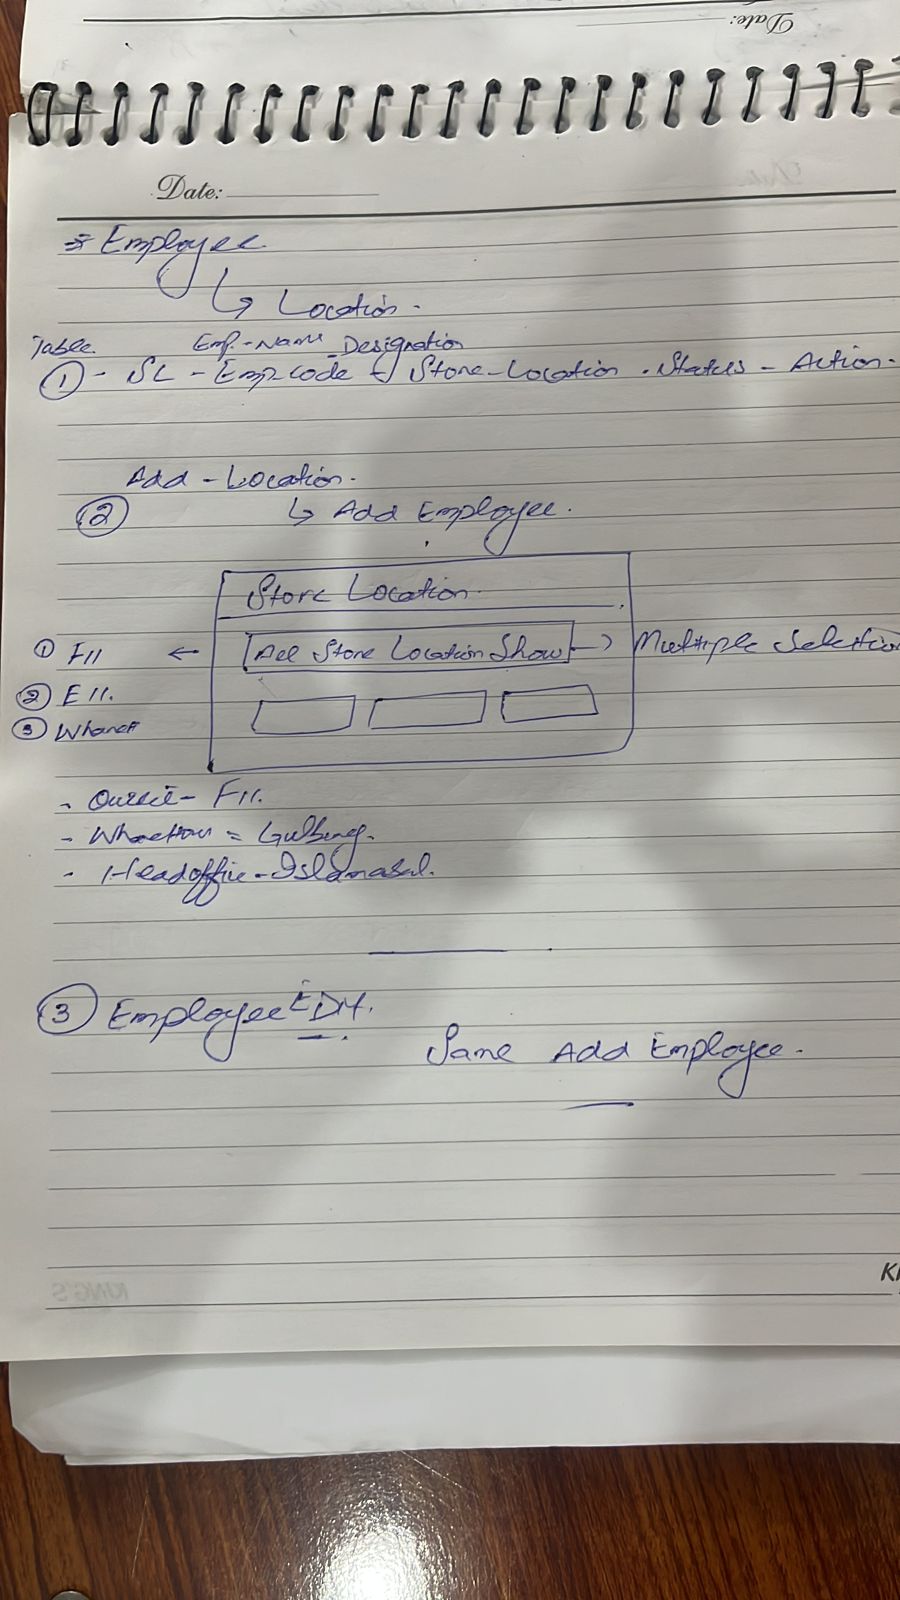 Date:
Date:
⇒ Employee
↳ Location.
Table. Emp.-Name - Designation
① - SL - Emp-code - Store-Location . Status - Action.
Add - Location.
② ↳ Add Employee.
Store Location
① F11 ← All Store Location Show → Multiple Selection
② E 11.
③
- F11.
- = Gulberg.
- Headoffice - Islamabad.
③ Employee EDit.
Same Add Employee.
KING'S